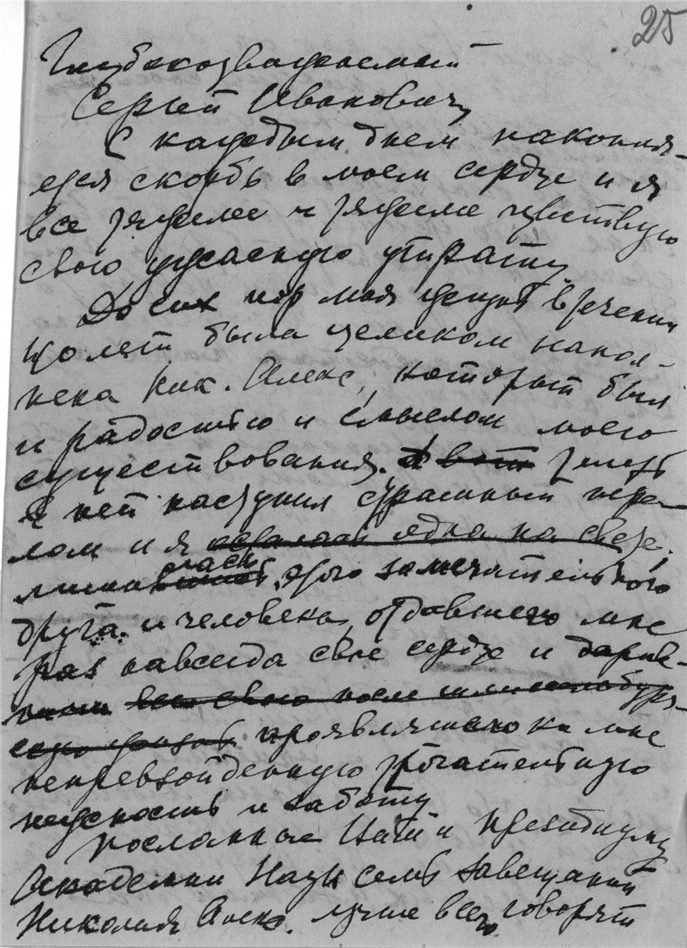 25
Глубокоуважаемый
Сергей Иванович
С каждым днем накопля-
ется скорбь в моем сердце и я
все тяжелее и тяжелее чувствую
свою ужасную утрату
До сих пор моя жизнь в течении
40 лет была целиком напол-
нена Ник. Алекс, который был
и радостью и смыслом моего
существования. А вот теперь
в ней наступил страшный пере-
лом и я осталась одна на свете.
лишилась этого замечательного
друга и человека, отдавшего мне
раз навсегда свое сердце и
всю свою после
проявлявшего ко мне
непревзойденную трогательную
нежность и заботу
Посланные Вам и Президиуму
Академии Наук семь завещаний
Николая Алекс. лучше всего говорят